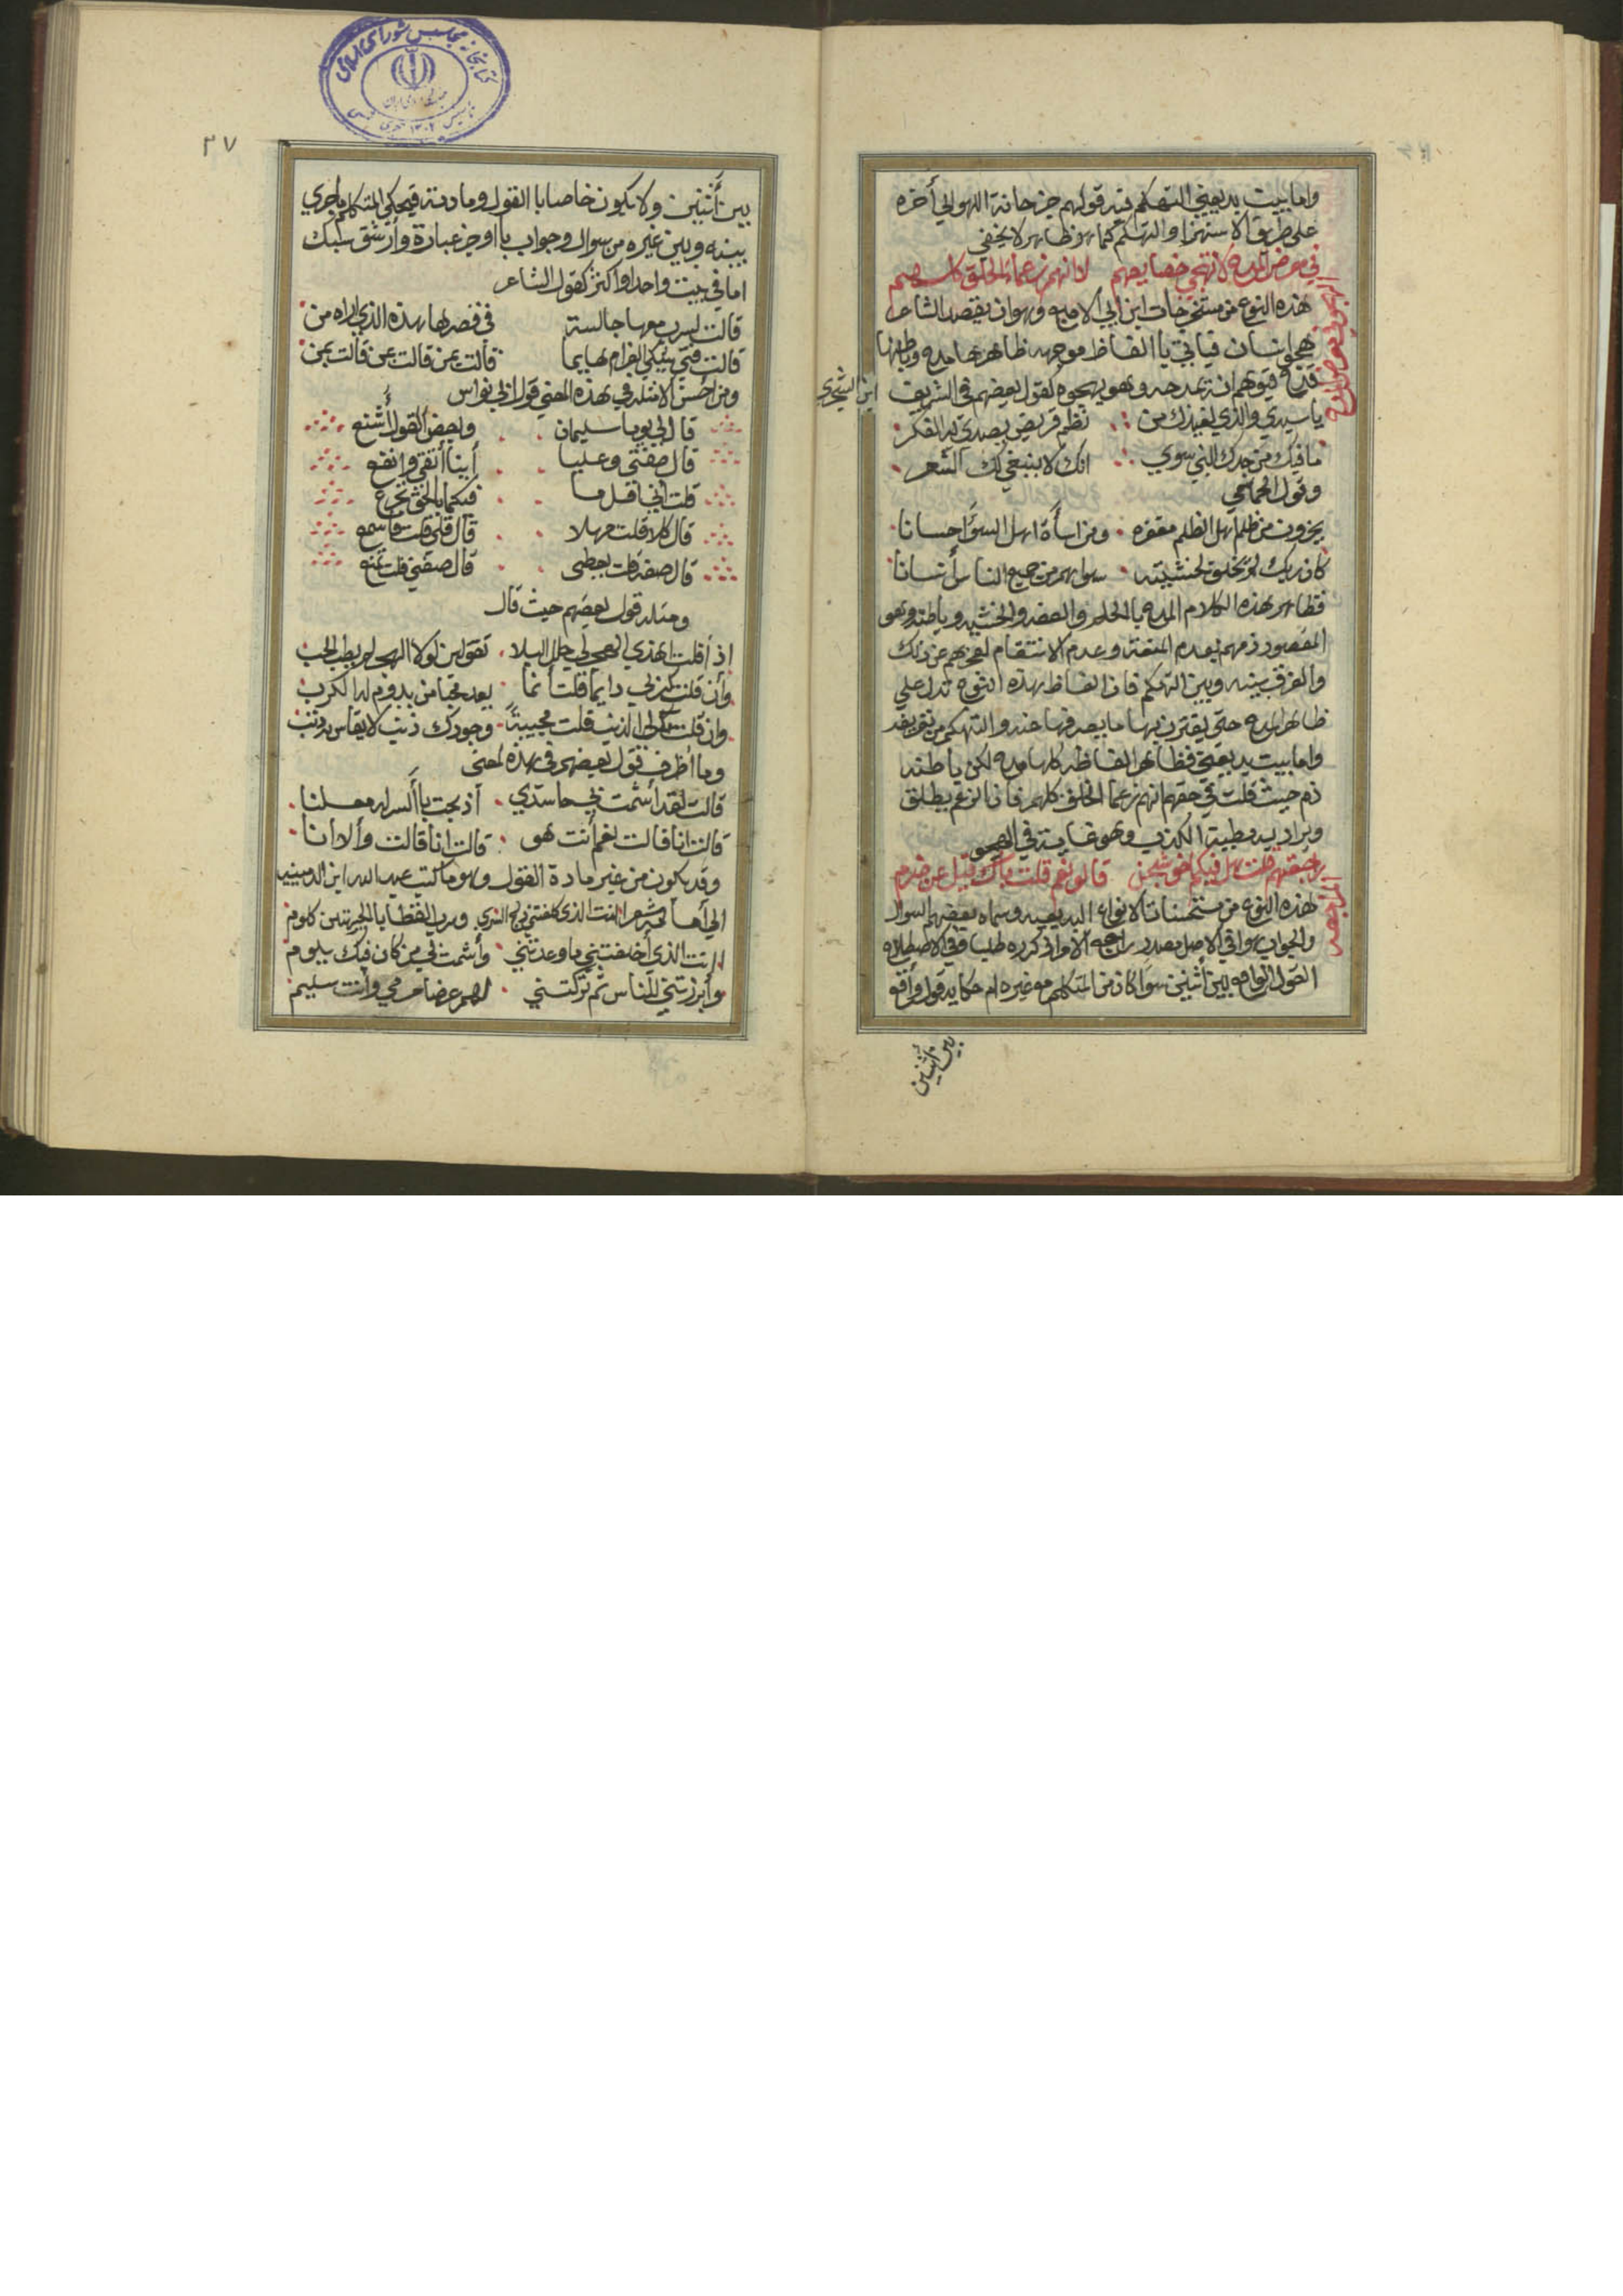 واما بيت بديعيتي التهكم فيه قولهم جزحانة اللهو الي أخره
علي طريق الاستهزا والتهكم كما هو ظاهر لا يخفي
في معرض المدح لا تهجي خصايصهم لانهم زعماء الخلق كلهم
الهجو في معرض المدح
هذه النوع من مستخرجات ابن ابي الاصابع وهو ان يقصد الشاعر
هجو انسان فياتي باالفاظ موجهه ظاهرها مدح وباطنها
قدح فيوهم انه يمدحه وهو يهجوه كقول بعضهم في الشريف
ابن الشجري
ياسيدي والذي يعيذك من نظم قريض يصدي به الفكر
ما فيك من جدك النبي سوي انك لا ينبغي لك الشعر
وقول الحماسي
يجزون من ظلم اهل الظلم مغفره ومن اساأة اهل السوء احسانا
كان ربك لم يخلق لخشيته سواهم من جميع الناس أنسانا
فظاهر هذه الكلام المدح باالحلم والعفه والخشيه وباطنه وهو
المقصود ذمهم بعدم المنعة وعدم الانتقام لعجزهم عن ذلك
والفرق بينه وبين التهكم فان الفاظ هذه النوع تدل علي
ظاهر المدح حتي يقترن بها ما يصرفها عنه والتهكم من تعريفه
واما بيت بديعيتي فظاهر الفاظه كلها مدح لكن باطنه
ذم حيث قلت في حقهم انهم زعما الخلق كلهم فان الزعم يطلق
ويراد به مطية الكذب وهو غاية في الهجو
راجعتهم قلت هل فيكم اخو شجن قالو نعم قلت باك قيل عن ضرم
المراجعه
هذه النوع من مستحسنات الانواع البديعيه وسماه بعضهم السوال
والجواب وافي الاصل مصدر راجع الامر اذ كرره طلبا وفي الاصطلاح
القول الواقع بين أثنين سوأ كان من المتكلم مع غيره ام حكاية قول واقع
بين أثنين
٣٧
بين أثنين ولا يكون خاصا باالقول ومادته فيحكي المتكلم ما جري
بينه وبين غيره من سوال وجواب باأوجز عبارة وأرشق سبك
اما في بيت واحد او اكثر كقول الشاعر
قالت لسرب معها جالسة في قصرها هذه الذي اراه من
قالت فتي يشكي الغرام هايما قالت بمن قالت عن قالت بمن
ومن احسن الامثله في هذه المعني قول ابي نواس
قال لي يوما سليمان وبعض القول أشنع
قال صفني وعليا أينا أتقي وانفع
قلت أني اقل ما فيكما باالحق تجزع
قال كلا قلت مهلا قال قل لي قلت فاسمع
قال صفه قلت يعطي قال صفني قلت تمنع
ومثله قول بعضهم حيث قال
اذ أقلت اهذي الهجر لي حلل البلا تقولين لولا الهجر لم يطب الحب
وأن قلت كربي دايما قلت أنما يعد محبا من يدوم له الكرب
وان قلت مالي الذنب قلت مجيبتاً وجودك ذنب لا يقاس به ذنب
وما اظرف قول بعضهم في هذه المعني
قالت لقد أشمت بي حاسدي اذ بحت باالسر له معلنا
قالت انا قالت نعم أنت هو قالت انا قالت وألا انا
وقد يكون من غير مادة القول وهو ما كتب عبد الله ابن الدمينيه
الي أمامه شعرا أانت الذي كلفتني دلج السري ورب القطا باالجهتين كلوم
اانت الذي أخلفتني ما وعدتني وأشمت لي من كان فيك يلوم
وأبرزتني للناس ثم تركتني لهم غرضا ارمي وأنت سليم